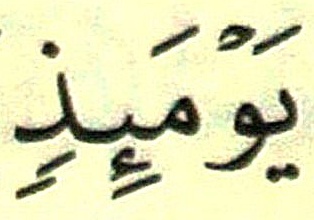 يَوْمَئِذِ